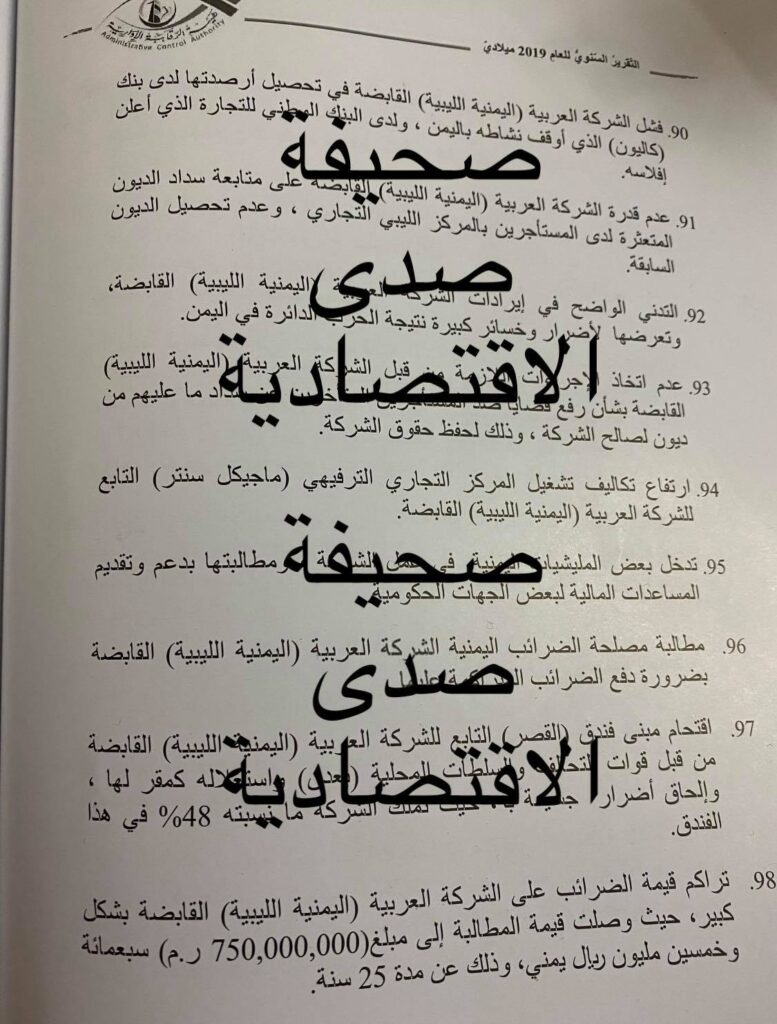 Administrative Control Authority
التقرير السنوي للعام 2019 ميلادي
90. فشل الشركة العربية (اليمنية الليبية) القابضة في تحصيل أرصدتها لدى بنك
(كاليون) الذي أوقف نشاطه باليمن ، ولدى البنك الوطني للتجارة الذي أعلن
إفلاسه.
صحيفة
91. عدم قدرة الشركة العربية (اليمنية الليبية) القابضة على متابعة سداد الديون
المتعثرة لدى المستأجرين بالمركز الليبي التجاري ، وعدم تحصيل الديون
السابقة.
صدى
92. التدني الواضح في إيرادات الشركة العربية (اليمنية الليبية) القابضة،
وتعرضها لأضرار وخسائر كبيرة نتيجة الحرب الدائرة في اليمن.
الاقتصادية
93. عدم اتخاذ الإجراءات اللازمة من قبل الشركة العربية (اليمنية الليبية)
القابضة بشأن رفع قضايا ضد المستأجرين سداد ما عليهم من
ديون لصالح الشركة ، وذلك لحفظ حقوق الشركة.
94. ارتفاع تكاليف تشغيل المركز التجاري الترفيهي (ماجيكل سنتر) التابع
للشركة العربية (اليمنية الليبية) القابضة.
صحيفة
95. تدخل بعض المليشيات اليمنية في عمل الشركة ومطالبتها بدعم وتقديم
المساعدات المالية لبعض الجهات الحكومية.
96. مطالبة مصلحة الضرائب اليمنية الشركة العربية (اليمنية الليبية) القابضة
بضرورة دفع الضرائب المتراكمة عليها.
صدى
97. اقتحام مبنى فندق (القصر) التابع للشركة العربية (اليمنية الليبية) القابضة
من قبل قوات التحالف والسلطات المحلية (بعدن) واستغلاله كمقر لها ،
وإلحاق أضرار جسيمة به، حيث تملك الشركة ما نسبته 48% في هذا
الفندق.
الاقتصادية
98. تراكم قيمة الضرائب على الشركة العربية (اليمنية الليبية) القابضة بشكل
كبير، حيث وصلت قيمة المطالبة إلى مبلغ(750,000,000 ر.م) سبعمائة
وخمسين مليون ريال يمني، وذلك عن مدة 25 سنة.